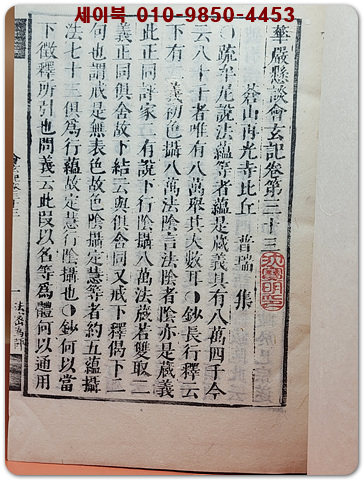 세이북 010-9850-4453
華嚴懸談會玄記卷第三十三
蒼山再光寺比丘 普瑞 集
○疏牟尼說法蘊等者蘊是藏義其有八萬四千今
云八十者唯有八萬舉其大數耳○鈔長行釋云
下有二義初色攝八萬法陰言法陰者陰亦是藏義
此正同評家二有說下行陰攝八萬法蘊若雙取二
義正同俱舍故下結云與俱舍同又戒下釋偈下二
句也謂戒是無表色故色陰攝定慧等者約五蘊攝
法七十三俱爲行蘊故定慧行陰攝○鈔何以當
下徵釋所引也問義云此旣以名等爲體何以通用